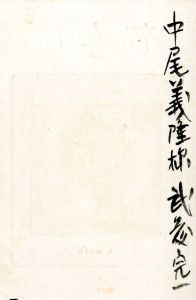 中尾義隆様 武藤完一